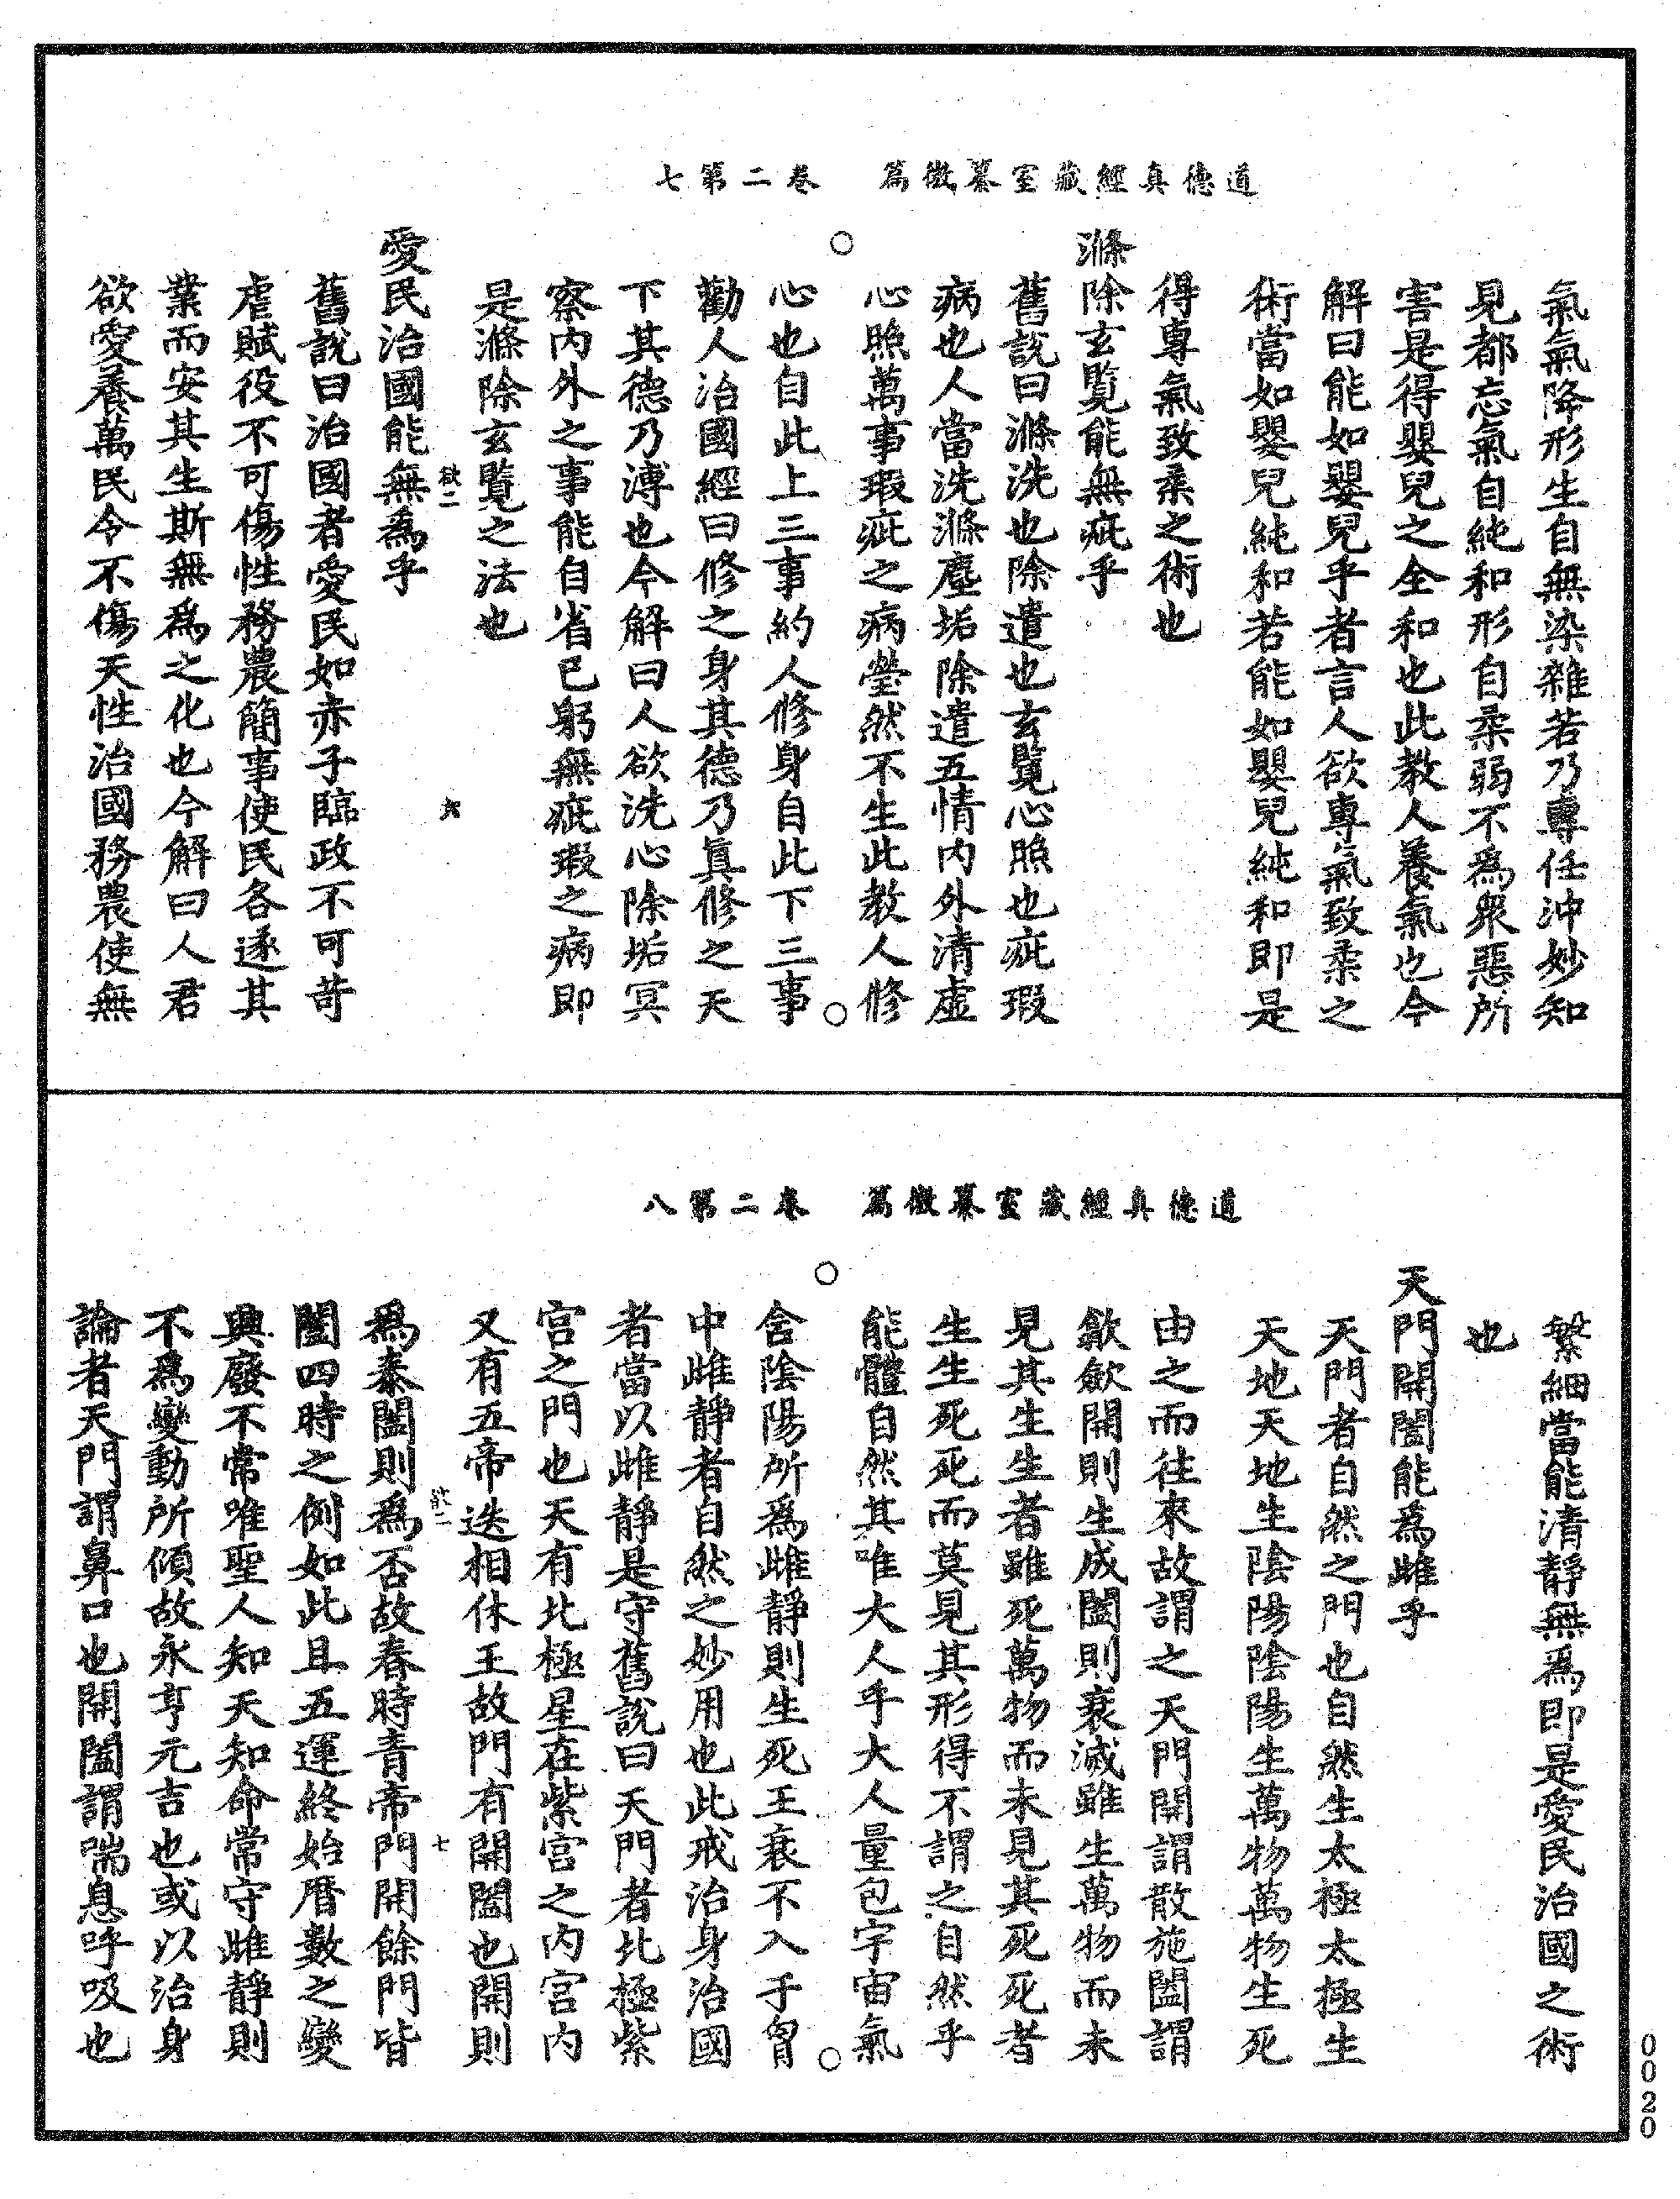 道德真經藏室纂微篇　卷二第七
氣氣降形生自無染雜若乃專任沖妙知
見都忘氣自純和形自柔弱不為眾惡所
害是得嬰兒之全和也此教人養氣也今
解曰能如嬰兒乎者言人欲專氣致柔之
術當如嬰兒純和若能如嬰兒純和即是
得專氣致柔之術也
滌除玄覽能無疵乎
舊說曰滌洗也除遣也玄覽心照也疵瑕
病也人當洗滌塵垢除遣五情內外清虛
心照萬事瑕疵之病瑩然不生此教人修
心也自此上三事約人修身自此下三事
勸人治國經曰修之身其德乃真修之天
下其德乃溥也今解曰人欲洗心除垢冥
察內外之事能自省己躬無疵瑕之病即
是滌除玄覽之法也
欲二　六
愛民治國能無為乎
舊說曰治國者愛民如赤子臨政不可苛
虐賦役不可傷性務農簡事使民各遂其
業而安其生斯無為之化也今解曰人君
欲愛養萬民令不傷天性治國務農使無
道德真經藏室纂微篇　卷二第八
繁細當能清靜無為即是愛民治國之術
也
天門開闔能為雌乎
天門者自然之門也自然生太極太極生
天地天地生陰陽陰陽生萬物萬物生死
由之而往來故謂之天門開謂散施闔謂
歙斂開則生成闔則衰滅雖生萬物而未
見其生生者雖死萬物而未見其死死者
生生死死而莫見其形得不謂之自然乎
能體自然其唯大人乎大人量包宇宙氣
含陰陽所為雌靜則生死王衰不入于胷
中雌靜者自然之妙用也此戒治身治國
者當以雌靜是守舊說曰天門者北極紫
宮之門也天有北極星在紫宮之內宮內
又有五帝迭相休王故門有開闔也開則
欲二　七
為泰闔則為否故春時青帝門開餘門皆
闔四時之例如此且五運終始曆數之變
興廢不常唯聖人知天知命常守雌靜則
不為變動所傾故永亨元吉也或以治身
論者天門謂鼻口也開闔謂喘息呼吸也
0020